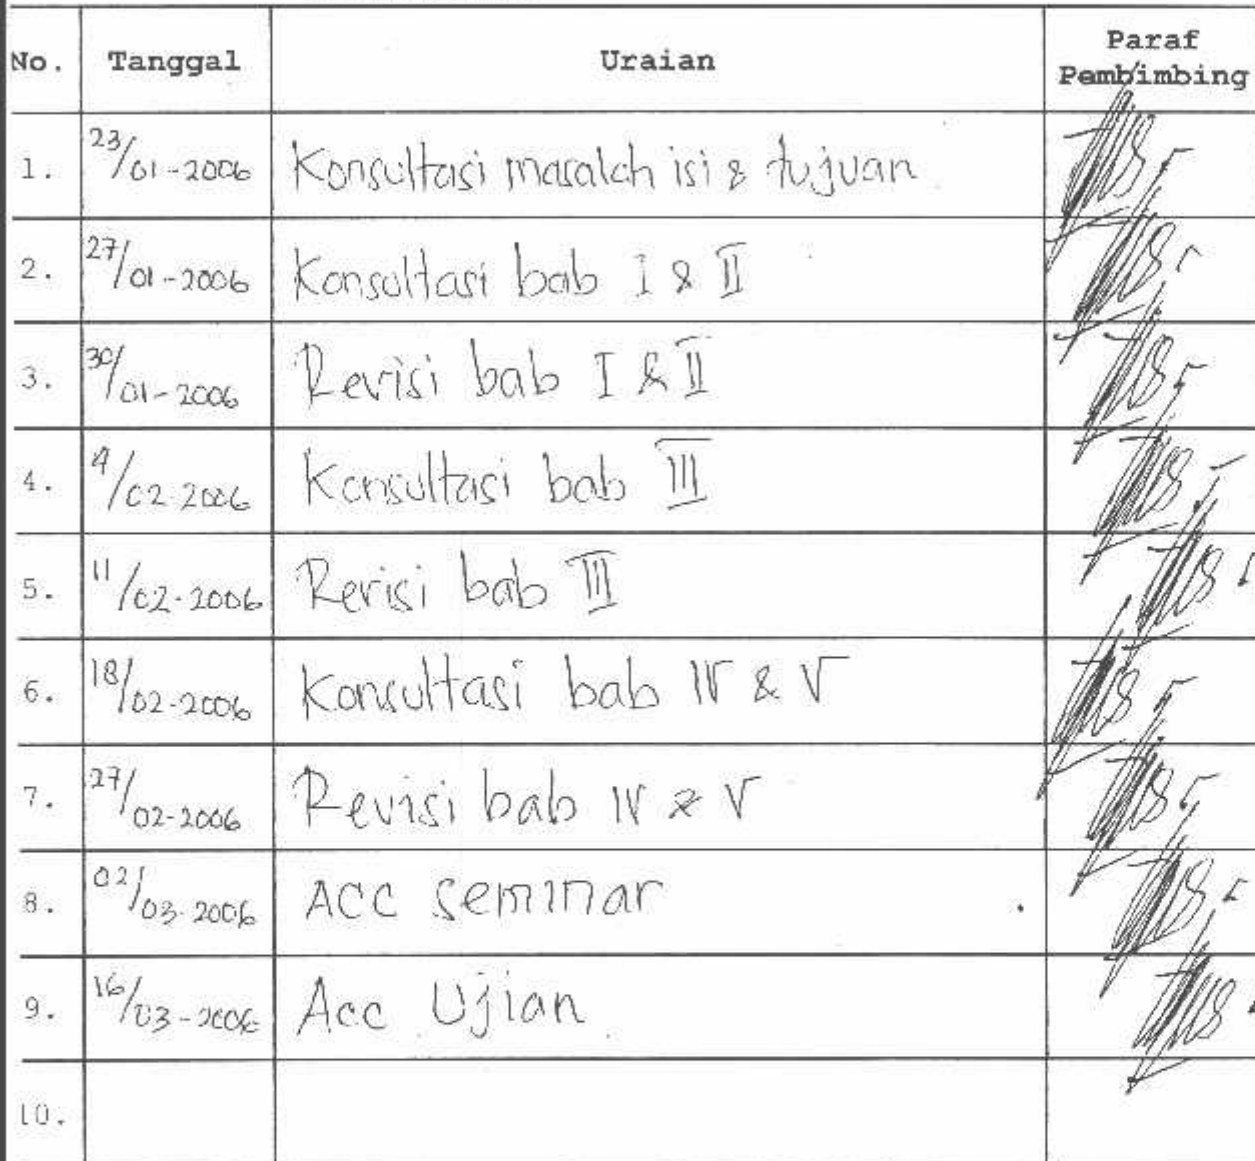 No. Tanggal Uraian Paraf Pembimbing
1. 23/01-2006 Konsultasi masalah isi & tujuan
2. 27/01-2006 Konsultasi bab I & II
3. 30/01-2006 Revisi bab I & II
4. 4/02-2006 Konsultasi bab III
5. 11/02-2006 Revisi bab III
6. 18/02-2006 Konsultasi bab IV & V
7. 27/02-2006 Revisi bab IV & V
8. 02/03-2006 ACC seminar
9. 16/03-2006 Acc Ujian
10.